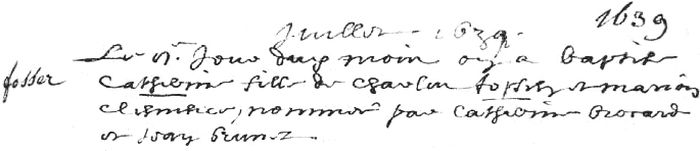 1639
Juillet. 1639.
Le 5e Jour dud moin on a baptisé
fosser Catherine fille de Charles fosser et marion
nommee par Catherine brocard
et Jean brunet.